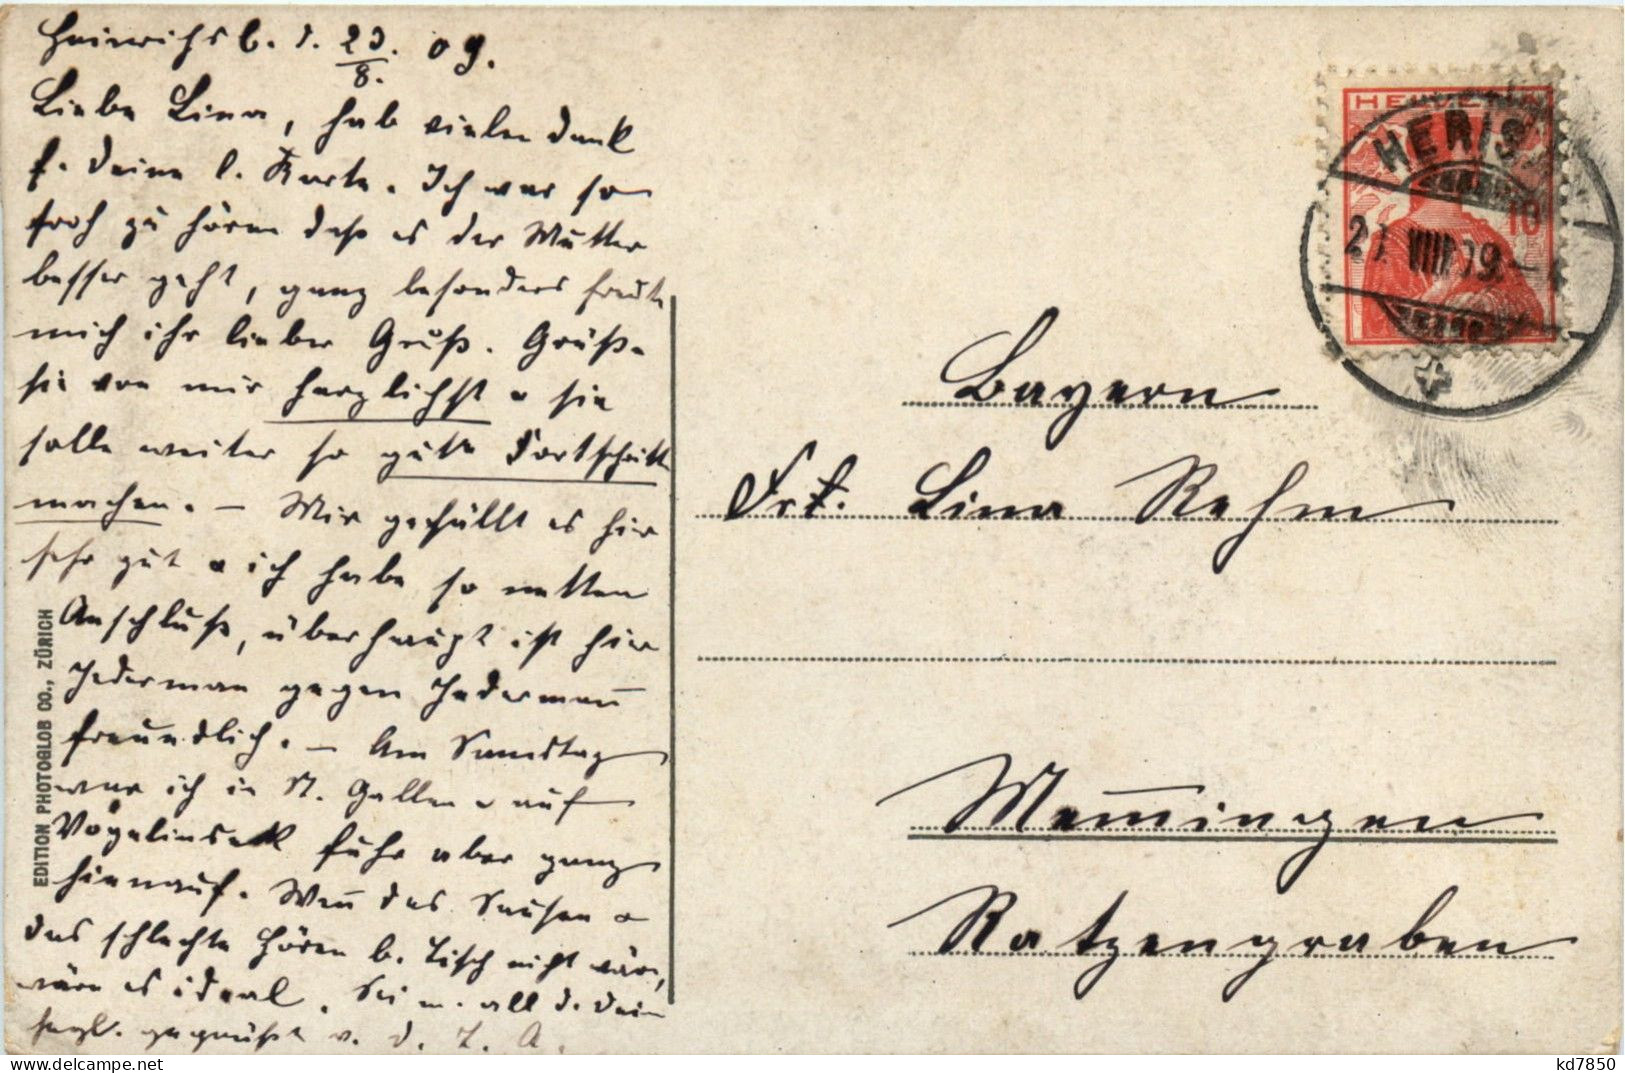 Heinrichsb. d. 23./8. 09.
Liebe Lina, hab vielen Dank
f. Deine l. Karte. Ich war so
froh zu hören daß es der Mutter
besser geht, ganz besonders freute
mich ihr lieber Gruß. Grüße
sie von mir herzlichst u sie
solle weiter so gute Fortschritte
machen. – Mir gefällt es hier
sehr gut u ich habe so netten
Anschluß, überhaupt ist hier
Jederman gegen Jederman̄
freundlich. – Am Samstag
war ich in St. Gallen u auf
Vögelinseck fuhr aber ganz
hienauf. Wen̄ das Sausen u
das schlechte Hören b. Tisch nicht wär,
wäre es ideal. Sei m. all d. Dein
herzl. gegrüßt v. d. T. A.
EDITION PHOTOGLOB CO., ZÜRICH
HELVETIA
10
HERIS
VIII 09
Bayern
Frl. Lina Rehm
Mem̄ingen
Ratzengraben
kd7850